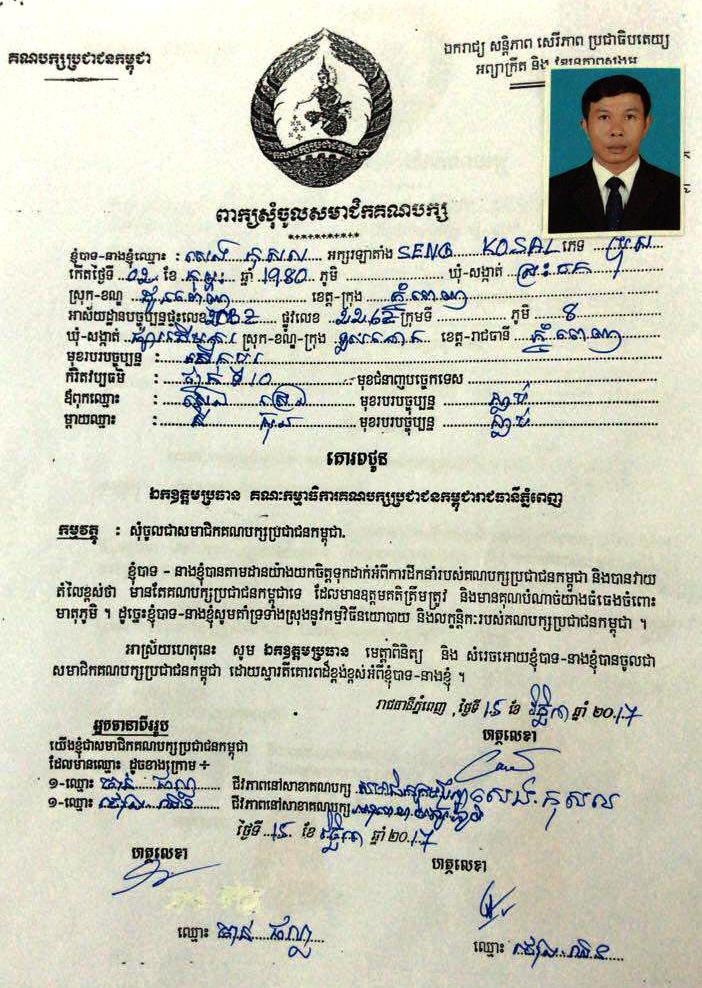 គណបក្សប្រជាជនកម្ពុជា
ឯករាជ្យ សន្តិភាព សេរីភាព ប្រជាធិបតេយ្យ
អព្យាក្រឹត និង វឌ្ឍនភាពសង្គម
គណបក្សប្រជាជនកម្ពុជា
ពាក្យសុំចូលសមាជិកគណបក្ស
ខ្ញុំបាទ-នាងខ្ញុំឈ្មោះ : សេង កុសល អក្សរឡាតាំង SENG KOSAL ភេទ ប្រុស
កើតថ្ងៃទី 02 ខែ កុម្ភៈ ឆ្នាំ 1980 ភូមិ ឃុំ-សង្កាត់ ស្រះចក
ស្រុក-ខណ្ឌ ដូនពេញ ខេត្ត-ក្រុង ភ្នំពេញ
អាស័យដ្ឋានបច្ចុប្បន្នផ្ទះលេខ ផ្លូវលេខ ក្រុមទី ភូមិ 8
ឃុំ-សង្កាត់ ផ្សារដើមគរ ស្រុក-ខណ្ឌ-ក្រុង ទួលគោក ខេត្ត-រាជធានី ភ្នំពេញ
មុខរបរបច្ចុប្បន្ន :
កំរិតវប្បធម៌ : ថ្នាក់ទី 10 មុខជំនាញបច្ចេកទេស
ឪពុកឈ្មោះ : មុខរបរបច្ចុប្បន្ន ស្លាប់
ម្តាយឈ្មោះ : មុខរបរបច្ចុប្បន្ន ស្លាប់
គោរពជូន
ឯកឧត្តមប្រធាន គណៈកម្មាធិការគណបក្សប្រជាជនកម្ពុជារាជធានីភ្នំពេញ
កម្មវត្ថុ : សុំចូលជាសមាជិកគណបក្សប្រជាជនកម្ពុជា.
ខ្ញុំបាទ - នាងខ្ញុំ បានតាមដានយ៉ាងយកចិត្តទុកដាក់អំពីការដឹកនាំរបស់គណបក្សប្រជាជនកម្ពុជា និងបានវាយ
តំលៃខ្ពស់ថា មានតែគណបក្សប្រជាជនកម្ពុជាទេ ដែលមានឧត្តមគតិត្រឹមត្រូវ និងមានគុណបំណាច់យ៉ាងធំធេងចំពោះ
មាតុភូមិ ។ ដូច្នេះខ្ញុំបាទ-នាងខ្ញុំសូមគាំទ្រទាំងស្រុងនូវកម្មវិធីនយោបាយ និងលក្ខន្តិកៈរបស់គណបក្សប្រជាជនកម្ពុជា ។
អាស្រ័យហេតុនេះ សូម ឯកឧត្តមប្រធាន មេត្តាពិនិត្យ និង សំរេចអោយខ្ញុំបាទ-នាងខ្ញុំបានចូលជា
សមាជិកគណបក្សប្រជាជនកម្ពុជា ដោយស្មារតីគោរពដ៏ខ្ពង់ខ្ពស់អំពីខ្ញុំបាទ-នាងខ្ញុំ ។
រាជធានីភ្នំពេញ ,ថ្ងៃទី 15 ខែ វិច្ឆិកា ឆ្នាំ 2017
ហត្ថលេខា
អ្នកធានាពីររូប
យើងខ្ញុំជាសមាជិកគណបក្សប្រជាជនកម្ពុជា
ដែលមានឈ្មោះ ដូចខាងក្រោម ÷
១-ឈ្មោះ ជីវភាពនៅសាខាគណបក្ស
សេង. កុសល
១-ឈ្មោះ ជីវភាពនៅសាខាគណបក្ស
ថ្ងៃទី 15 ខែ វិច្ឆិកា ឆ្នាំ 2017
ហត្ថលេខា
ហត្ថលេខា
ឈ្មោះ
ឈ្មោះ